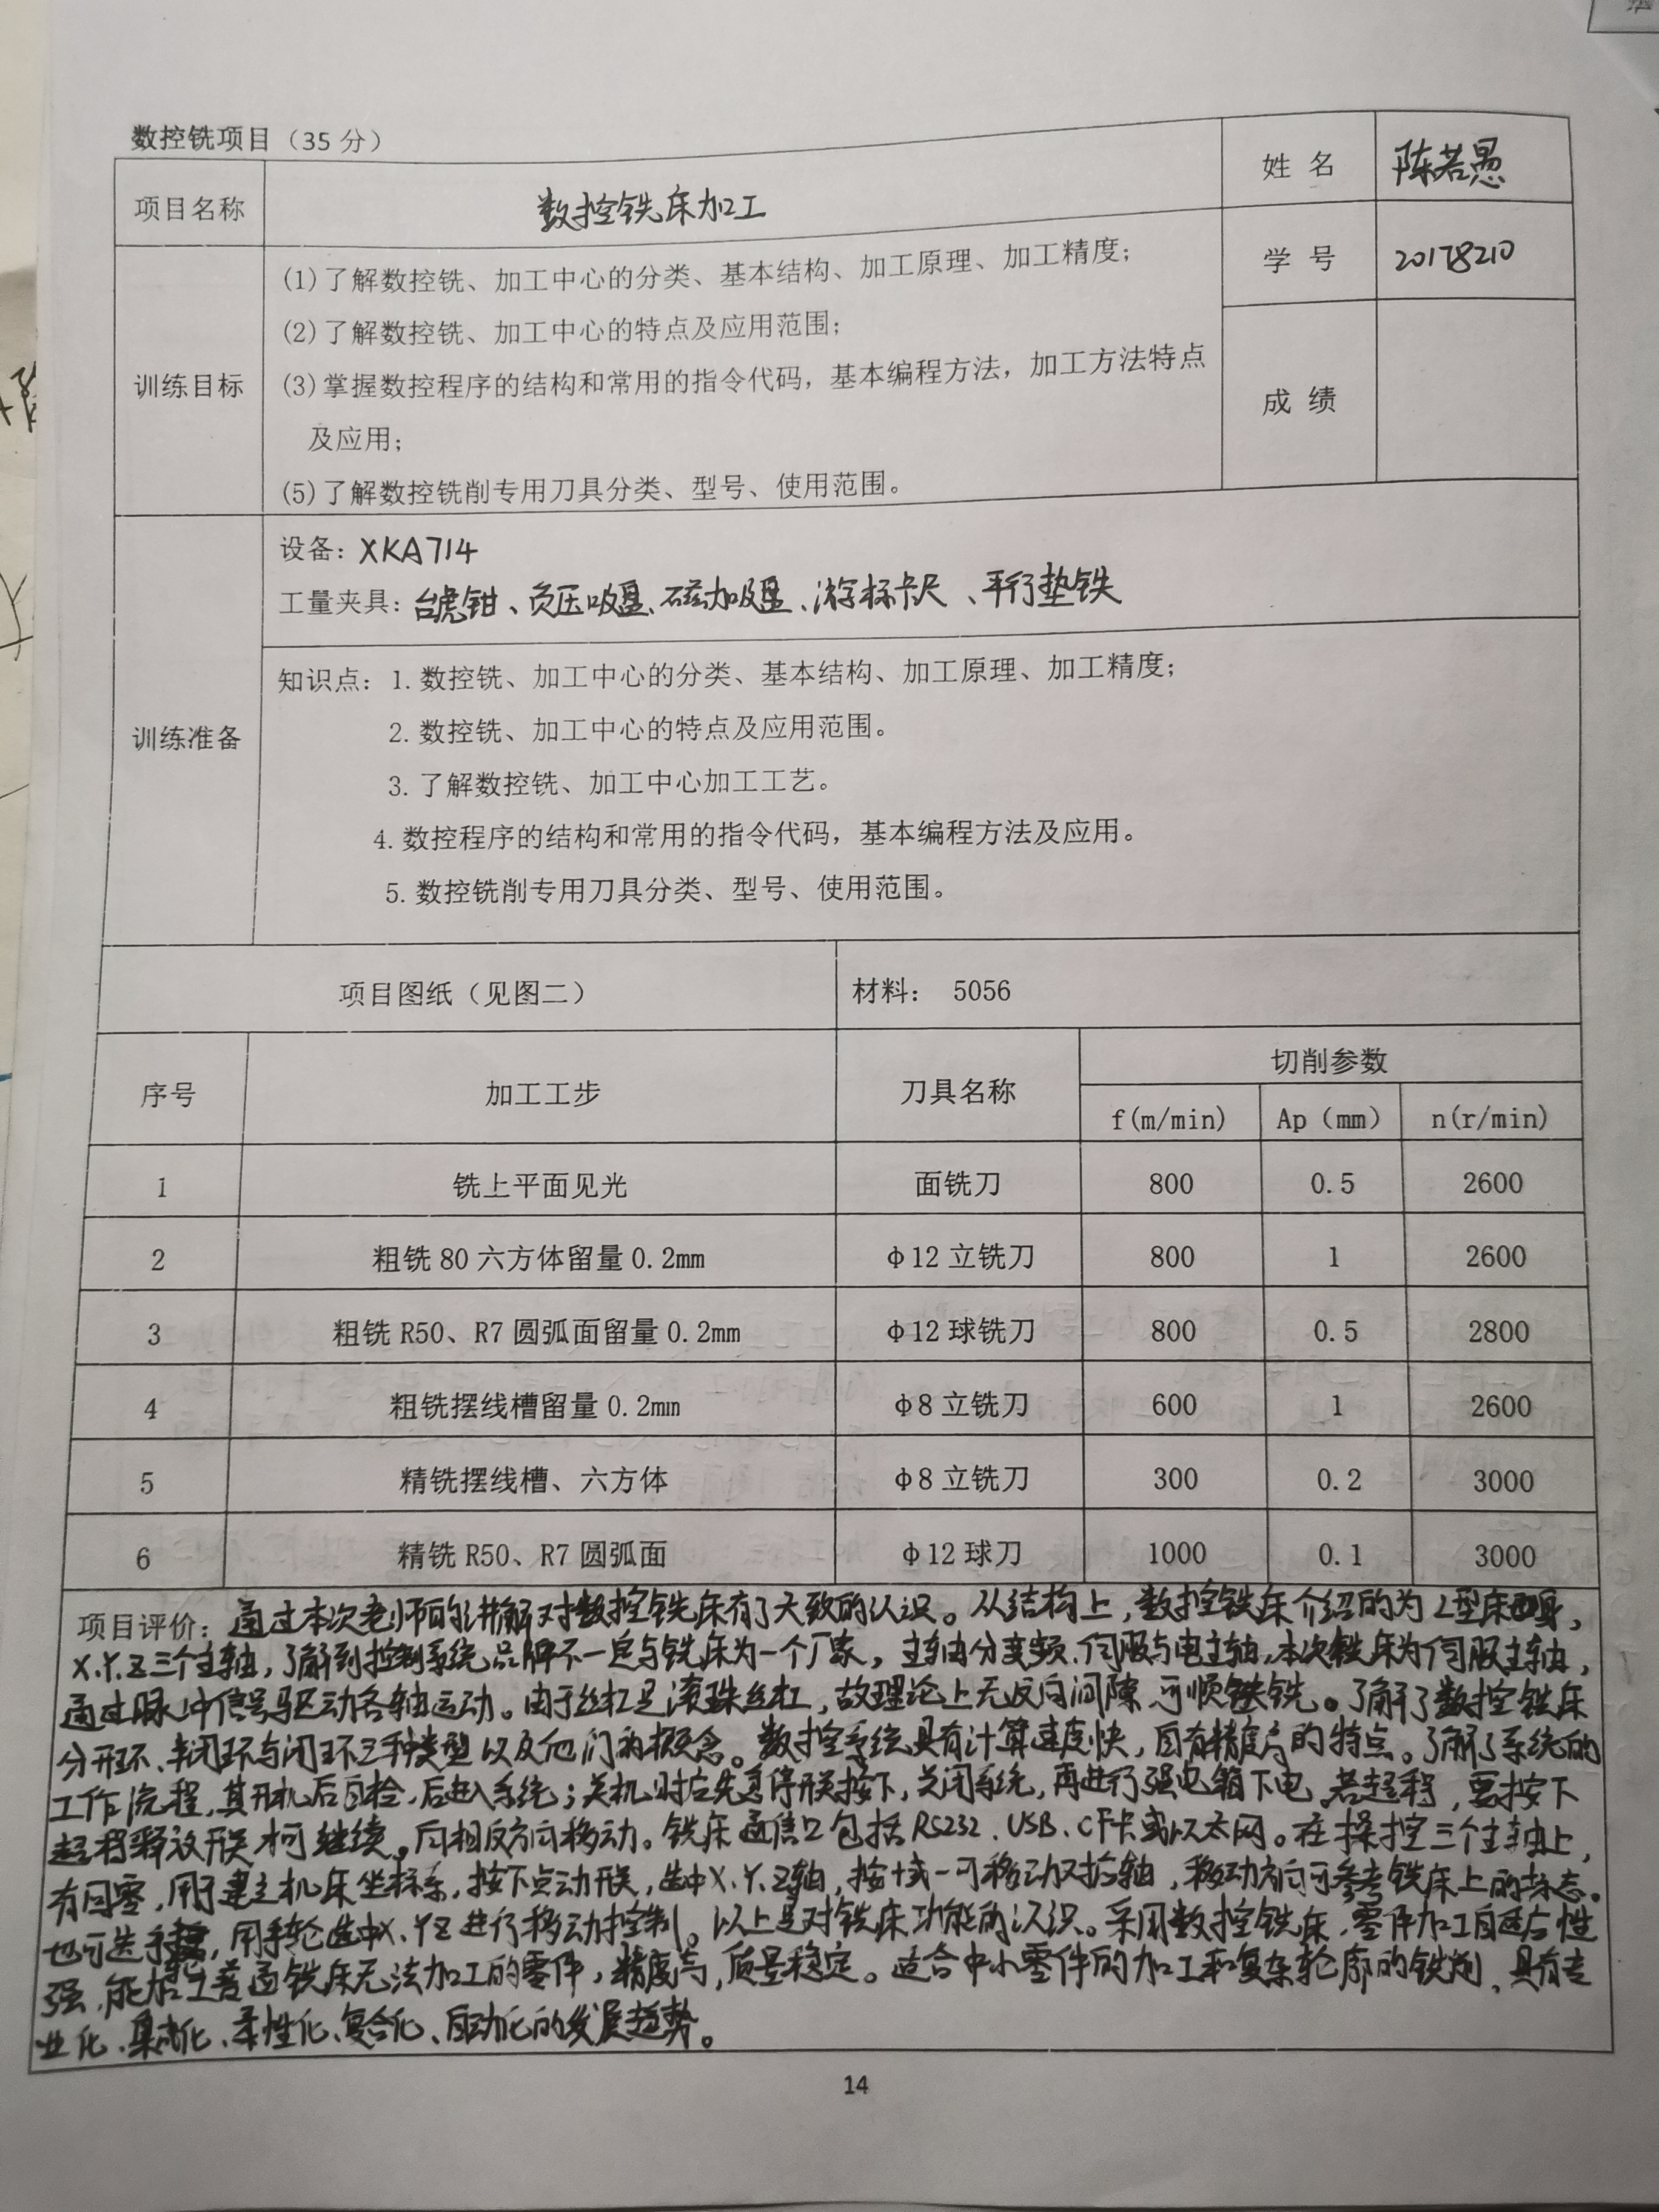 数控铣项目（35 分）
项目名称
数控铣床加工
姓 名
陈若愚
学 号
20178210
成 绩
训练目标
(1)了解数控铣、加工中心的分类、基本结构、加工原理、加工精度；
(2)了解数控铣、加工中心的特点及应用范围；
(3)掌握数控程序的结构和常用的指令代码，基本编程方法，加工方法特点
及应用；
(5)了解数控铣削专用刀具分类、型号、使用范围。
训练准备
设备：XKA714
工量夹具：台虎钳、负压吸盘、磁力吸盘、游标卡尺、平行垫铁
知识点：1.数控铣、加工中心的分类、基本结构、加工原理、加工精度；
2.数控铣、加工中心的特点及应用范围。
3.了解数控铣、加工中心加工工艺。
4.数控程序的结构和常用的指令代码，基本编程方法及应用。
5.数控铣削专用刀具分类、型号、使用范围。
项目图纸（见图二） 材料： 5056
序号 加工工步 刀具名称 切削参数
f(m/min) Ap（mm） n(r/min)
1 铣上平面见光 面铣刀 800 0.5 2600
2 粗铣 80 六方体留量 0.2mm φ12 立铣刀 800 1 2600
3 粗铣 R50、R7 圆弧面留量 0.2mm φ12 球铣刀 800 0.5 2800
4 粗铣摆线槽留量 0.2mm φ8 立铣刀 600 1 2600
5 精铣摆线槽、六方体 φ8 立铣刀 300 0.2 3000
6 精铣 R50、R7 圆弧面 φ12 球刀 1000 0.1 3000
项目评价：通过本次老师的讲解对数控铣床有了大致的认识。从结构上，数控铣床介绍的为L型床身，
X.Y.Z三个主轴，了解到控制系统品牌不一定与铣床为一个厂家，主轴分变频、伺服与电主轴，本次铣床为伺服主轴，
通过脉冲信号驱动各轴运动。由于丝杠是滚珠丝杠，故理论上无反向间隙，可顺铣。了解了数控铣床
分开环、半闭环与闭环三种类型以及他们的概念。数控系统具有计算速度快，自有精度高的特点。了解了系统的
工作流程，其开机后自检，后进入系统；关机时应先急停开关按下，关闭系统，再进行强电箱下电，若超程，要按下
超程释放开关才可继续，向相反方向移动。铣床通信口包括RS232、USB、CF卡或以太网。在操控三个主轴上，
有回零，用于建立机床坐标系，按下点动开关，选中X、Y、Z轴，按+或-可移动对应轴，移动方向可参考铣床上的标志。
也可选手摇，用手轮选中X、YZ进行移动控制。以上是对铣床功能的认识。采用数控铣床，零件加工自适应性
强，能加工普通铣床无法加工的零件，精度高，质量稳定。适合中小零件的加工和复杂轮廓的铣削，具有专
业化、集成化、柔性化、复合化、自动化的发展趋势。
14